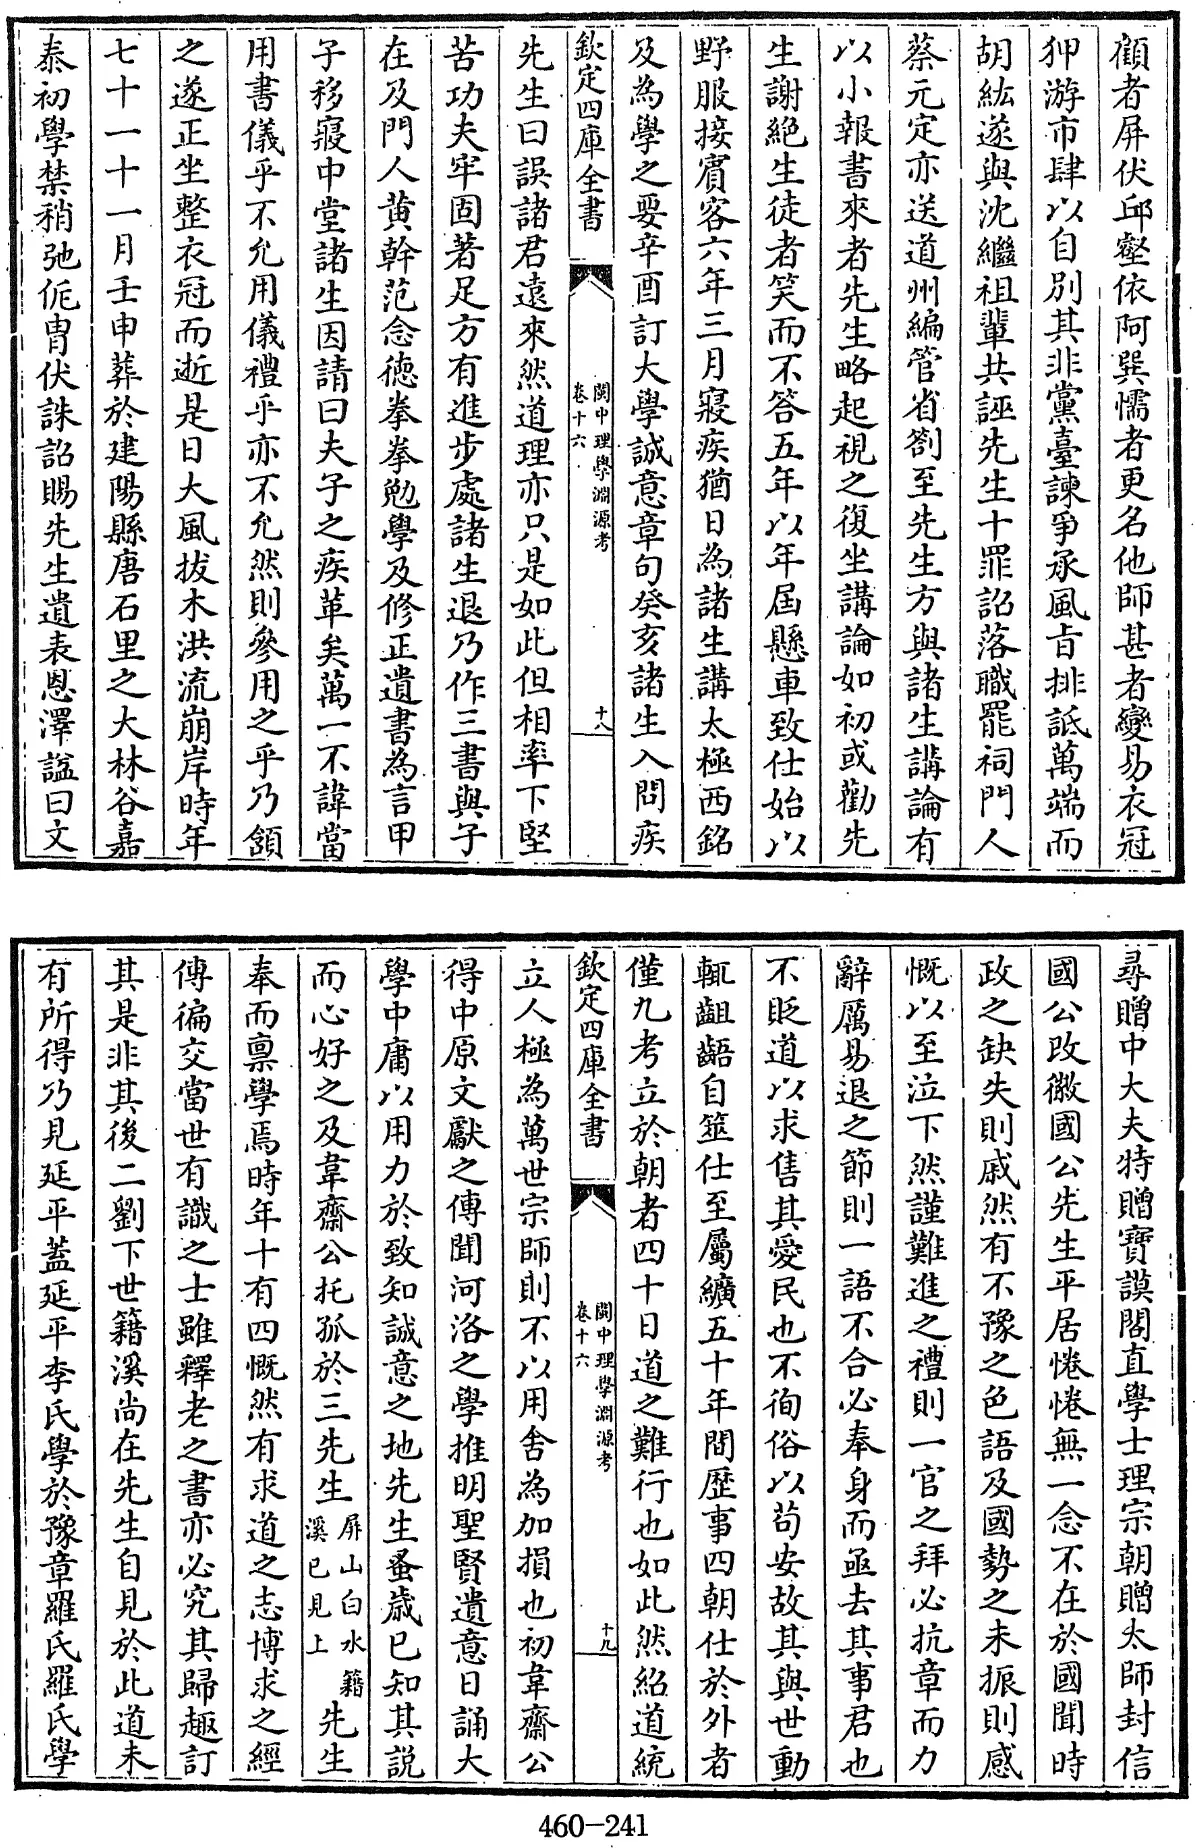 顧者屏伏邱壑依阿巽懦者更名他師甚者變易衣冠
狎游市肆以自別其非黨臺諫爭承風旨排詆萬端而
胡紘遂與沈繼祖輩共誣先生十罪詔落職罷祠門人
蔡元定亦送道州編管省劄至先生方與諸生講論有
以小報書來者先生略起視之復坐講論如初或勸先
生謝絶生徒者笑而不答五年以年屆懸車致仕始以
野服接賓客六年三月寢疾猶日為諸生講太極西銘
及為學之要辛酉訂大學誠意章句癸亥諸生入問疾
欽定四庫全書
閩中理學淵源考
卷十六
十八
先生曰誤諸君遠來然道理亦只是如此但相率下堅
苦功夫牢固著足方有進步處諸生退乃作三書與子
在及門人黄幹范念徳拳拳勉學及修正遺書為言甲
子移寢中堂諸生因請曰夫子之疾革矣萬一不諱當
用書儀乎不允用儀禮乎亦不允然則參用之乎乃頷
之遂正坐整衣冠而逝是日大風拔木洪流崩岸時年
七十一十一月壬申葬於建陽縣唐石里之大林谷嘉
泰初學禁稍弛侂胄伏誅詔賜先生遺表恩澤諡曰文
尋贈中大夫特贈寶謨閣直學士理宗朝贈太師封信
國公改徽國公先生平居惓惓無一念不在於國聞時
政之缺失則戚然有不豫之色語及國勢之未振則感
慨以至泣下然謹難進之禮則一官之拜必抗章而力
辭厲易退之節則一語不合必奉身而亟去其事君也
不貶道以求售其愛民也不徇俗以苟安故其與世動
輒齟齬自筮仕至屬纊五十年間歴事四朝仕於外者
僅九考立於朝者四十日道之難行也如此然紹道統
欽定四庫全書
閩中理學淵源考
卷十六
十九
立人極為萬世宗師則不以用舍為加損也初韋齋公
得中原文獻之傳聞河洛之學推明聖賢遺意日誦大
學中庸以用力於致知誠意之地先生蚤歳已知其説
而心好之及韋齋公托孤於三先生屏山白水籍溪已見上先生
奉而禀學焉時年十有四慨然有求道之志博求之經
傳徧交當世有識之士雖釋老之書亦必究其歸趣訂
其是非其後二劉下世籍溪尚在先生自見於此道未
有所得乃見延平蓋延平李氏學於豫章羅氏羅氏學
460-241